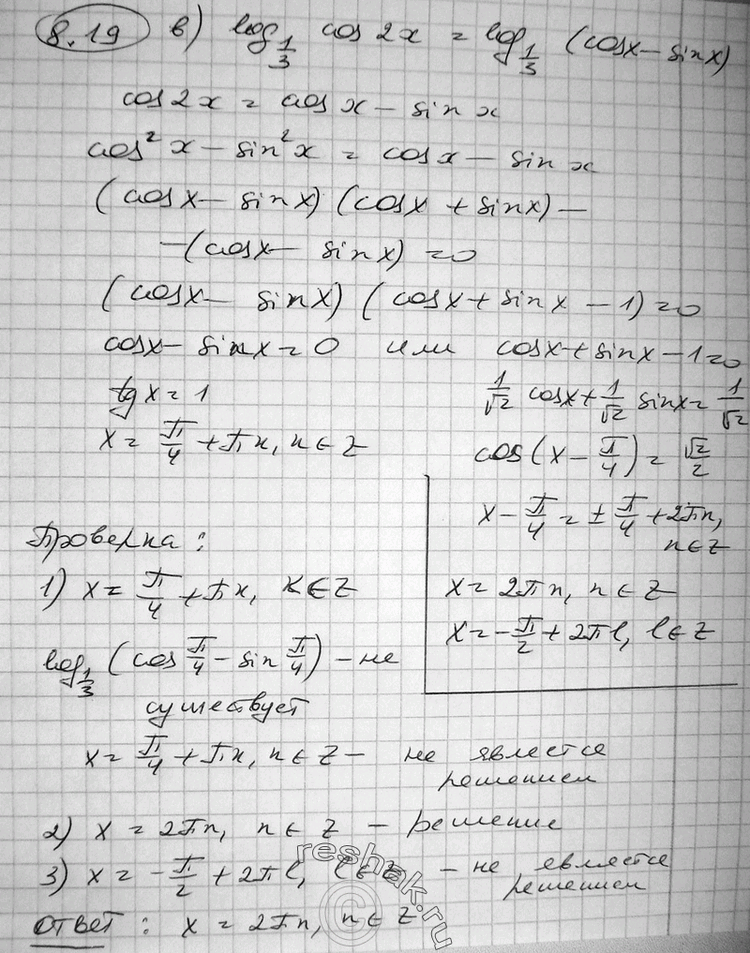 8.19 в) log_{1/3} cos 2x = log_{1/3} (cosx - sinx)
cos 2x = cos x - sin x
cos² x - sin² x = cos x - sin x
(cosx - sinx) (cosx + sinx) -
-(cosx - sinx) = 0
(cosx - sinx) (cosx + sinx - 1) = 0
cosx - sinx = 0 или cosx + sinx - 1 = 0
tg x = 1
x = π/4 + πn, n ∈ Z
1/√2 cosx + 1/√2 sinx = 1/√2
cos(x - π/4) = √2/2
x - π/4 = ± π/4 + 2πn,
n ∈ Z
x = 2πn, n ∈ Z
x = -π/2 + 2πl, l ∈ Z
Проверка:
1) x = π/4 + πк, к ∈ Z
log_{1/3} (cos π/4 - sin π/4) - не
существует
x = π/4 + πn, n ∈ Z - не является
решением
2) x = 2πn, n ∈ Z - решение
3) x = -π/2 + 2πl, l ∈ Z - не является
решением
Ответ: x = 2πn, n ∈ Z
reshak.ru
©